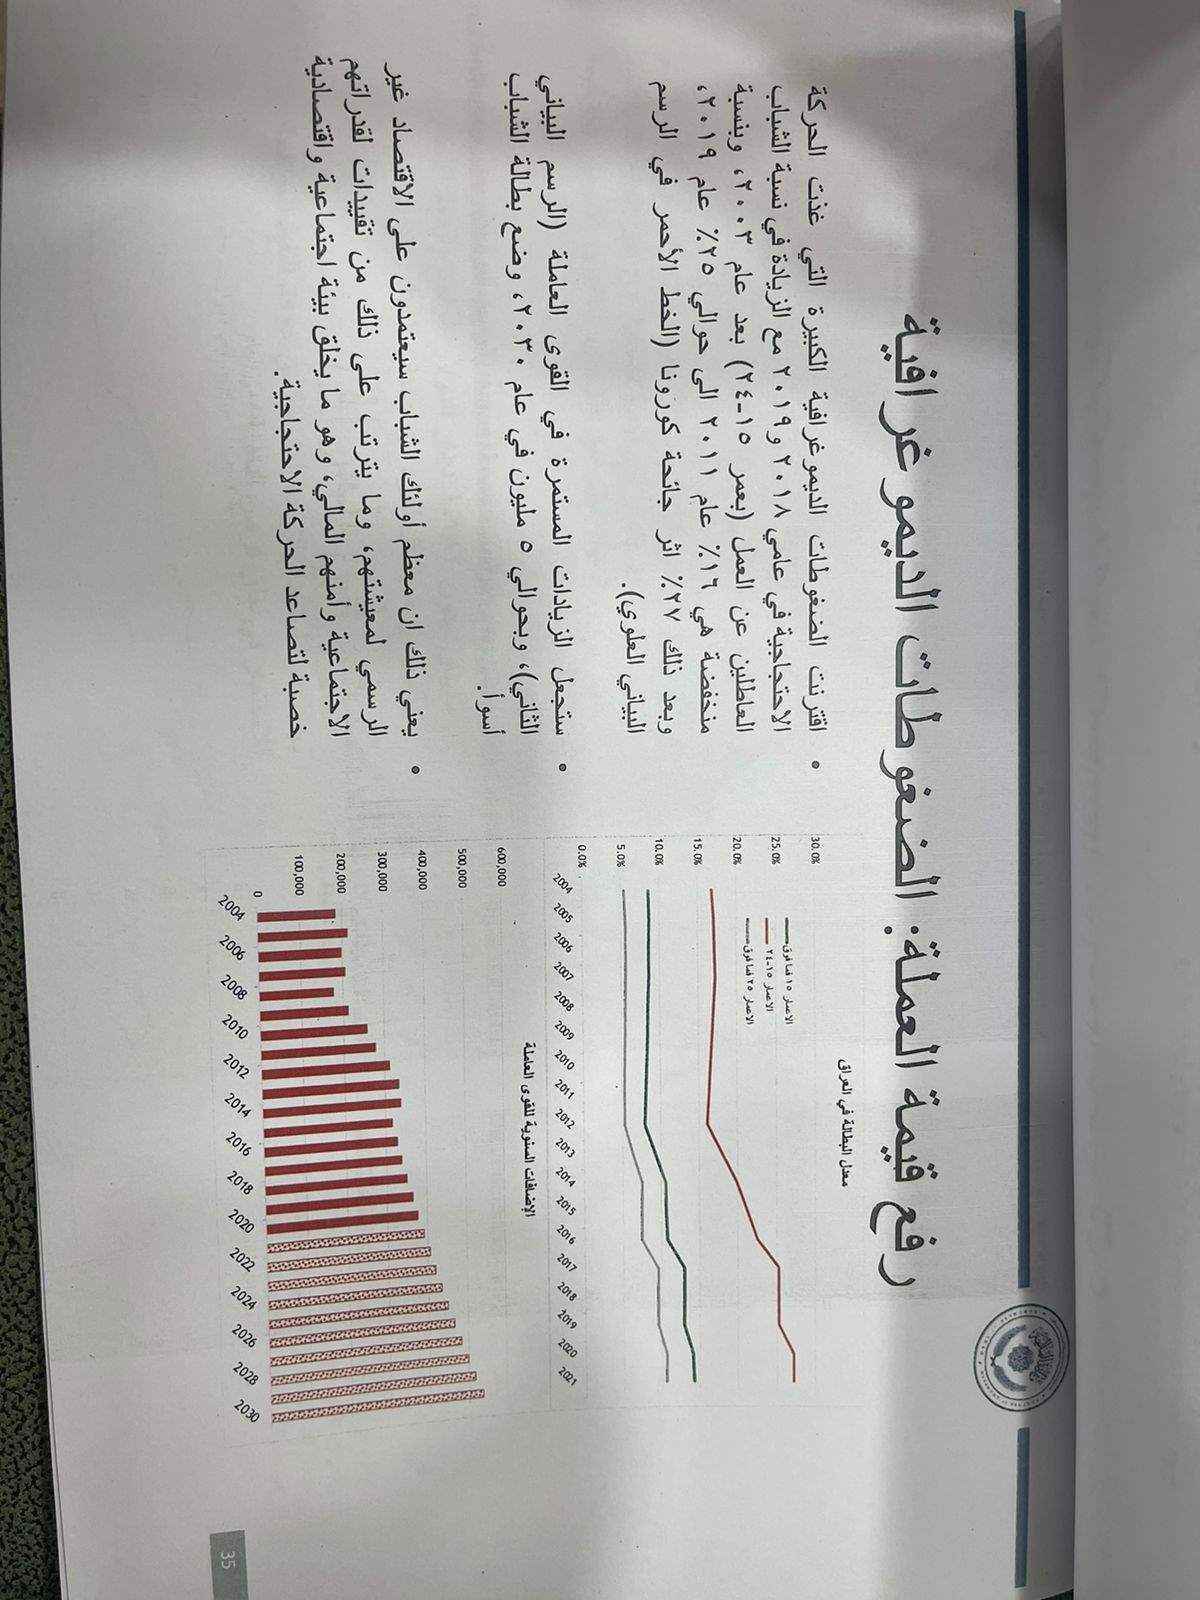 رفع قيمة العملة: الضغوطات الديموغرافية
معدل البطالة في العراق
30.0%
25.0%
20.0%
15.0%
10.0%
5.0%
0.0%
الاعمار ١٥ فما فوق
الاعمار ١٥-٢٤
الاعمار ٢٥ فما فوق
2004 2005 2006 2007 2008 2009 2010 2011 2012 2013 2014 2015 2016 2017 2018 2019 2020 2021
الإضافات السنوية للقوى العاملة
600,000
500,000
400,000
300,000
200,000
100,000
0
2004 2006 2008 2010 2012 2014 2016 2018 2020 2022 2024 2026 2028 2030
• اقترنت الضغوطات الديموغرافية الكبيرة التي غذت الحركة
الاحتجاجية في عامي ٢٠١٨ و٢٠١٩ مع الزيادة في نسبة الشباب
العاطلين عن العمل (بعمر ١٥-٢٤) بعد عام ٢٠٠٣، وبنسبة
منخفضة هي ١٦٪ عام ٢٠١١ الى حوالي ٢٥٪ عام ٢٠١٩،
وبعد ذلك ٢٧٪ اثر جائحة كورونا (الخط الأحمر في الرسم
البياني العلوي).
• ستجعل الزيادات المستمرة في القوى العاملة (الرسم البياني
الثاني)، وبحوالي ٥ مليون في عام ٢٠٣٠، وضع بطالة الشباب
أسوأ.
• يعني ذلك ان معظم أولئك الشباب سيعتمدون على الاقتصاد غير
الرسمي لمعيشتهم، وما يترتب على ذلك من تقييدات لقدراتهم
الاجتماعية وأمنهم المالي، وهو ما يخلق بيئة اجتماعية واقتصادية
خصبة لتصاعد الحركة الاحتجاجية.
35